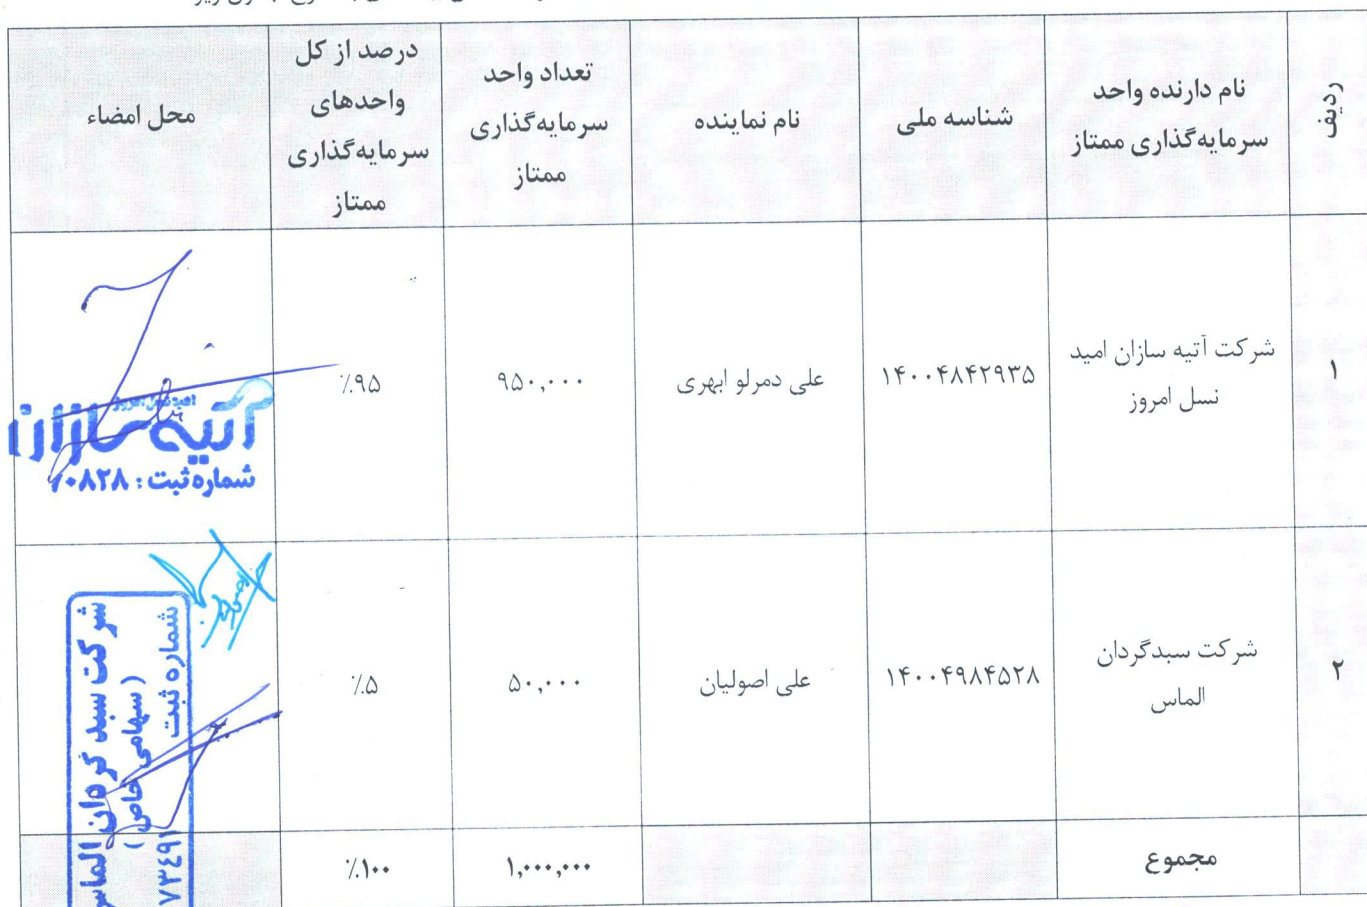 ردیف
نام دارنده واحد
سرمایه‌گذاری ممتاز
شناسه ملی
نام نماینده
تعداد واحد
سرمایه‌گذاری
ممتاز
درصد از کل
واحدهای
سرمایه‌گذاری
ممتاز
محل امضاء
۱
شرکت آتیه سازان امید
نسل امروز
۱۴۰۰۴۸۴۲۹۳۵
علی دمرلو ابهری
۹۵۰,۰۰۰
٪۹۵
آتیه سازان
شماره ثبت :
۲
شرکت سبدگردان
الماس
۱۴۰۰۴۹۸۴۵۲۸
علی اصولیان
۵۰,۰۰۰
٪۵
شرکت سبد گردان الماس
(سهامی خاص)
شماره ثبت
مجموع
۱,۰۰۰,۰۰۰
٪۱۰۰